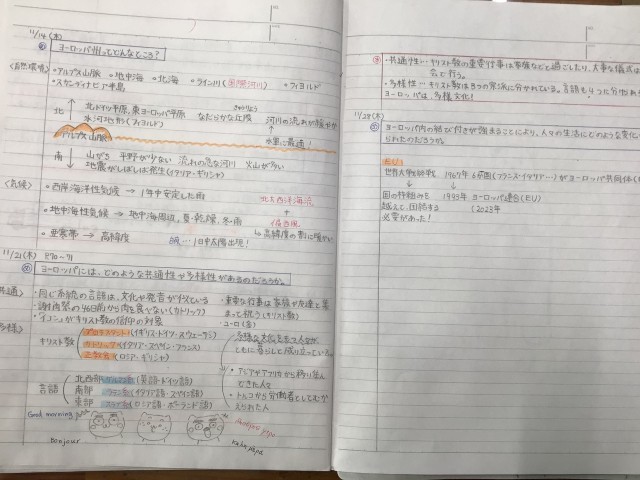 11/14(木)
め ヨーロッパ州ってどんなところ?
<自然環境> ・アルプス山脈 ・地中海 ・北海 ・ライン川(国際河川) ・フィヨルド
・スカンディナビア半島
北 ↑ 北ドイツ平原、東ヨーロッパ平原 なだらかな丘陵
きゅうりょう
氷河地形(フィヨルド)
河川の流れが緩やか
水運に最適!
アルプス山脈
南 ↓ 山がち 平野が少ない 流れの急な河川 火山が多い
地震がしばしば発生(イタリア・ギリシャ)
<気候> ・西岸海洋性気候 → 1年中安定した雨
北大西洋海流
+
偏西風
・地中海性気候 → 地中海周辺、夏・乾燥、冬・雨
↳ 高緯度の割に暖かい
・亜寒帯 → 高緯度 1日中太陽出現!
11/21(木) P70~71
め ヨーロッパには、どのような共通性や多様性があるのだろうか。
共通 ・同じ系統の言語は、文化や発音が似ている
・謝肉祭の46日前から肉を食べない(カトリック)
・「イコン」がキリスト教の信仰の対象
・重要な行事は家族や友達と集
まって祝う(キリスト教)
・ユーロ(金)
多様
キリスト教
プロテスタント(イギリス・ドイツ・スウェーデン)
カトリック(イタリア・スペイン・フランス)
正教会(ロシア・ギリシャ)
多様な文化をもつ人々が、
ともに暮らして成り立っている。
言語
北西部 ゲルマン系(英語・ドイツ語)
南部 ラテン系(イタリア語・スペイン語)
東部 スラブ系(ロシア語・ポーランド語)
・アジアやアフリカから移り住ん
できた人々
・トルコから労働者としてむか
えられた人
Good morning
bonjour
・共通性…キリスト教の重要行事は家族などと過ごしたり、大事な儀式は
会で行う。
・多様性…キリスト教は3つの宗派に分かれている。言語も3つに分かれ
ヨーロッパは、多様文化!
11/28(木)
め ヨーロッパ内の結び付きが強まることにより、人々の生活にどのような変化
られたのだろうか。
世界大戦終戦 1967年 6か国(フランス・イタリア…)がヨーロッパ共同体
↓ ↓
国の枠組みを 1993年 ヨーロッパ連合(EU)
越えて、団結する (2023年
必要があった!